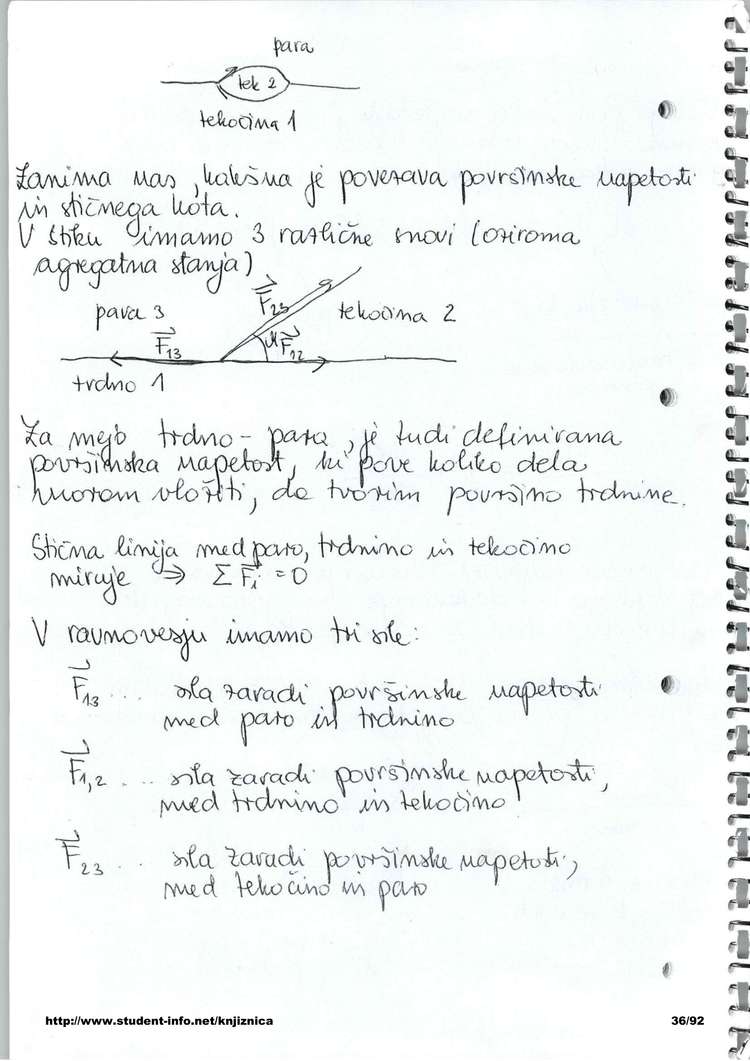 para
tek 2
tekočina 1
Zanima nas, kakšna je povezava površinske napetosti
in stičnega kota.
V stiku imamo 3 različne snovi (oziroma
agregatna stanja)
F23
para 3
tekočina 2
F13
F12
trdno 1
Za mejo trdno - para, je tudi definirana
površinska napetost, ki pove koliko dela
moram vložiti, da tvorim površino trdnine.
Stična linija med paro, trdnino in tekočino
miruje ⇒ Σ Fi = 0
V ravnovesju imamo tri sile:
F13 ... sila zaradi površinske napetosti
med paro in trdnino
F1,2 ... sila zaradi površinske napetosti,
med trdnino in tekočino
F23 .. sila zaradi površinske napetosti,
med tekočino in paro
http://www.student-info.net/knjiznica
36/92